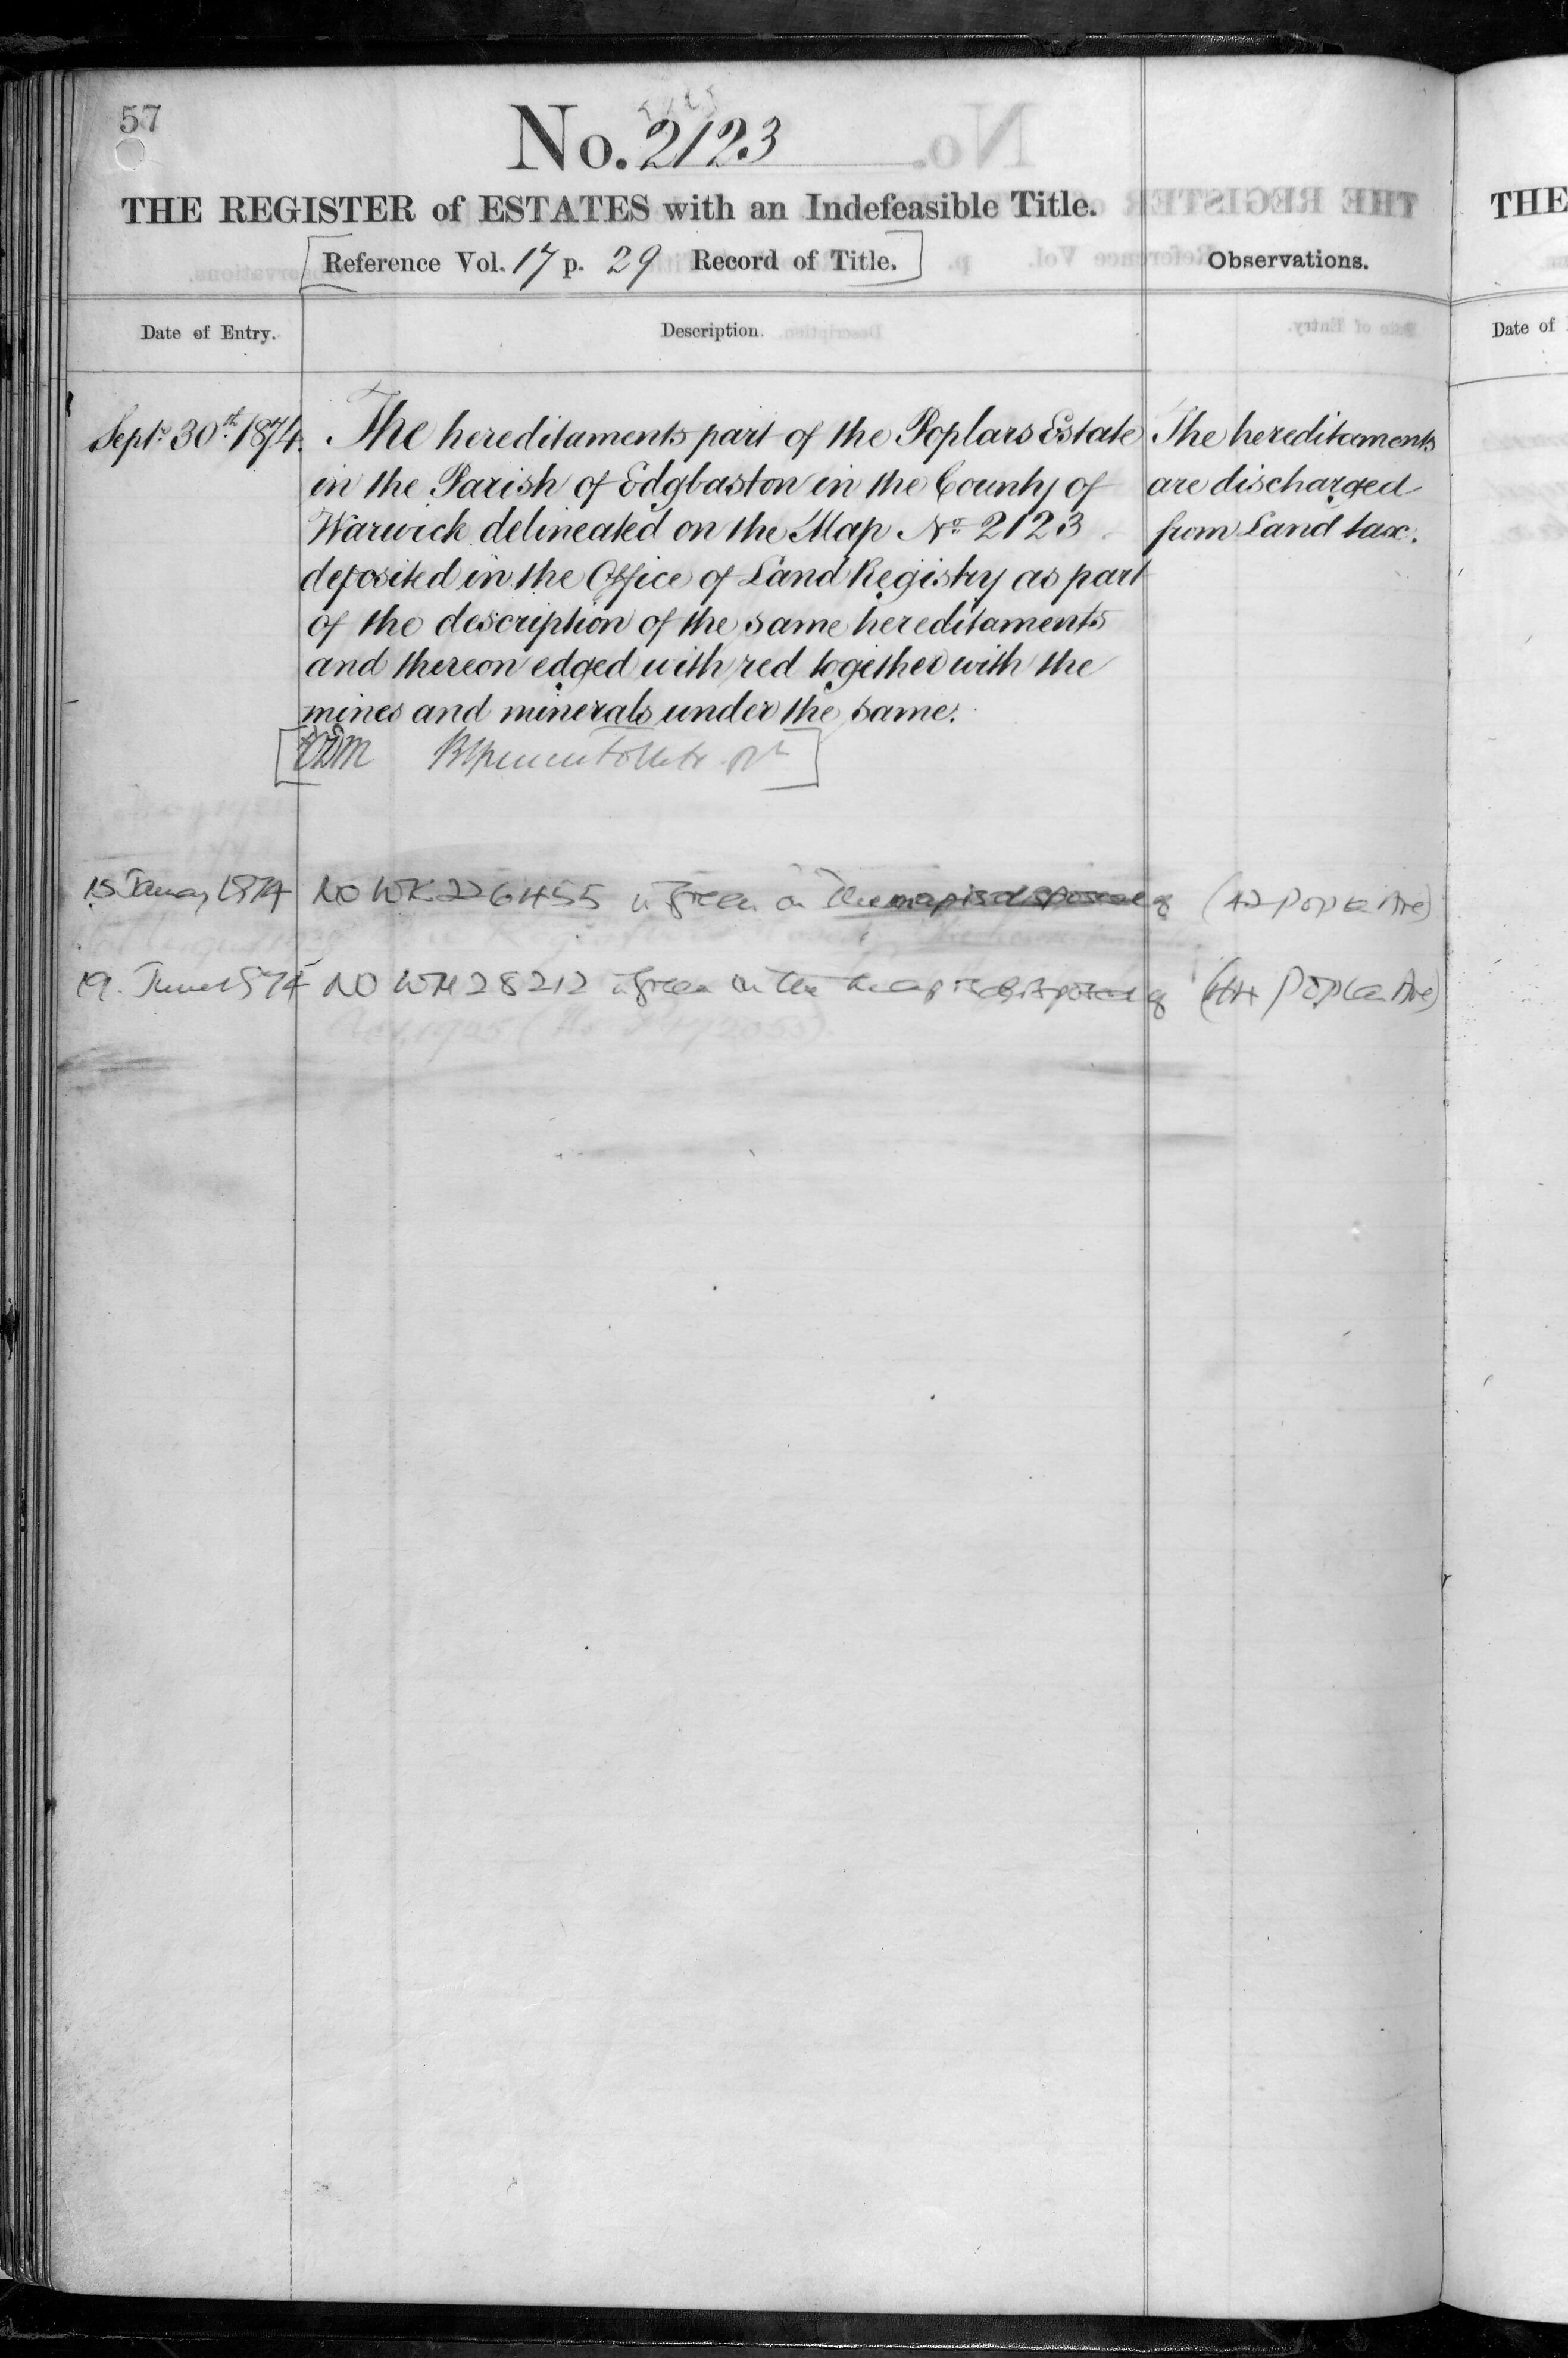 57
No. 2123
THE REGISTER of ESTATES with an Indefeasible Title.
Reference Vol. 17 p. 29 Record of Title.
Observations.
Date of Entry.
Description.
Septr. 30th. 1874.
The hereditaments part of the Poplars Estate
in the Parish of Edgbaston in the County of
Warwick delineated on the Map No 2123
deposited in the Office of Land Registry as part
of the description of the same hereditaments
and thereon edged with red together with the
mines and minerals under the same.
The hereditaments
are discharged
from Land tax.
15 January 1974 NO WK226455 green on the map is disposed of (42 Poplar Ave)
19. June 1974 NO WM28212 green on the map is disposed of (44 Poplar Ave)
THE
Date of